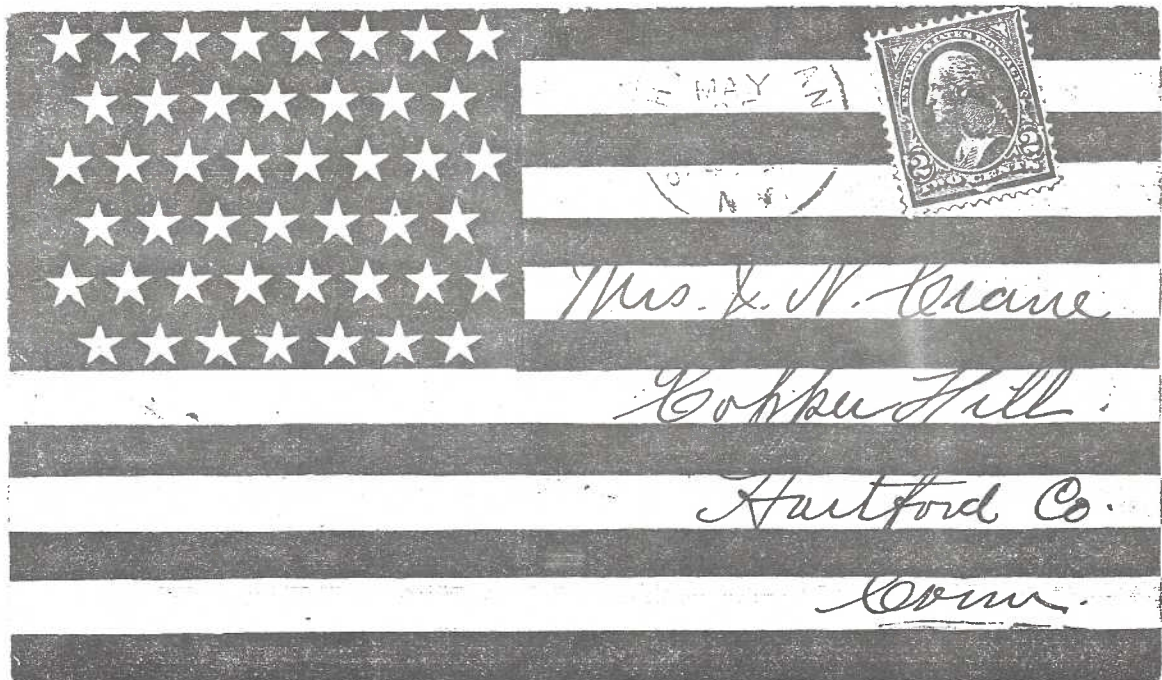 MAY
N.Y.
UNITED STATES POSTAGE
2 2
TWO CENTS
Mrs. X. N. Crane
Copper Hill.
Hartford Co.
Conn.